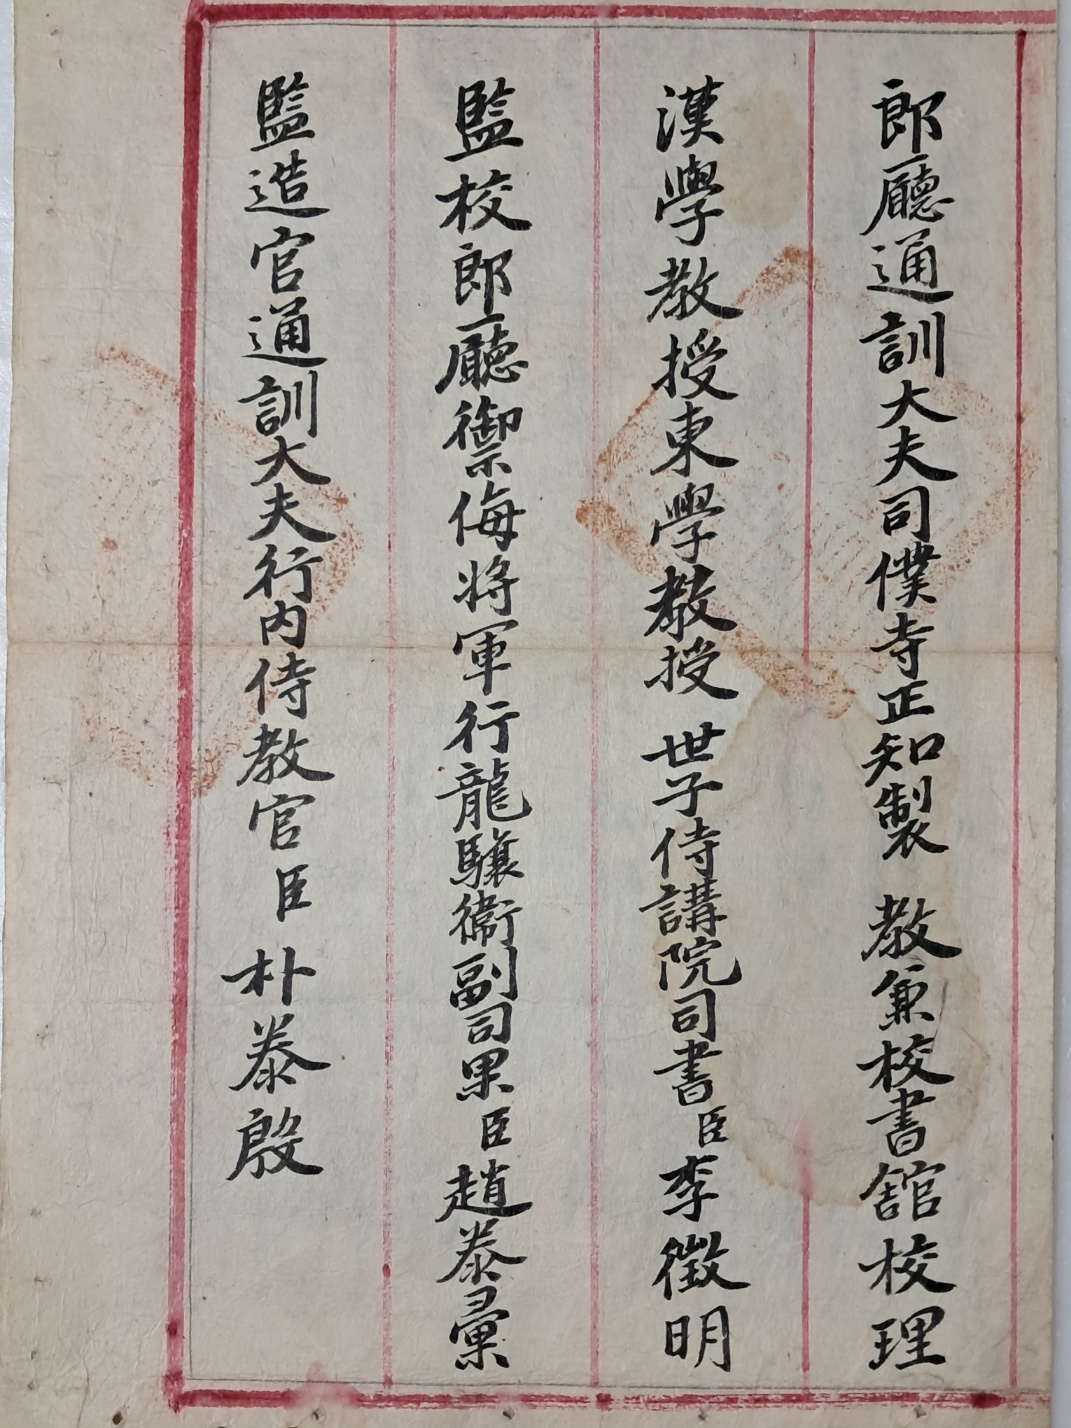 郎廳通訓大夫司僕寺正知製 教兼校書舘校理
漢學教授東學教授 世子侍講院司書臣李徵明
監校郎廳禦侮將軍行龍驤衛副司果臣趙泰彙
監造官通訓大夫行內侍教官臣朴泰殷